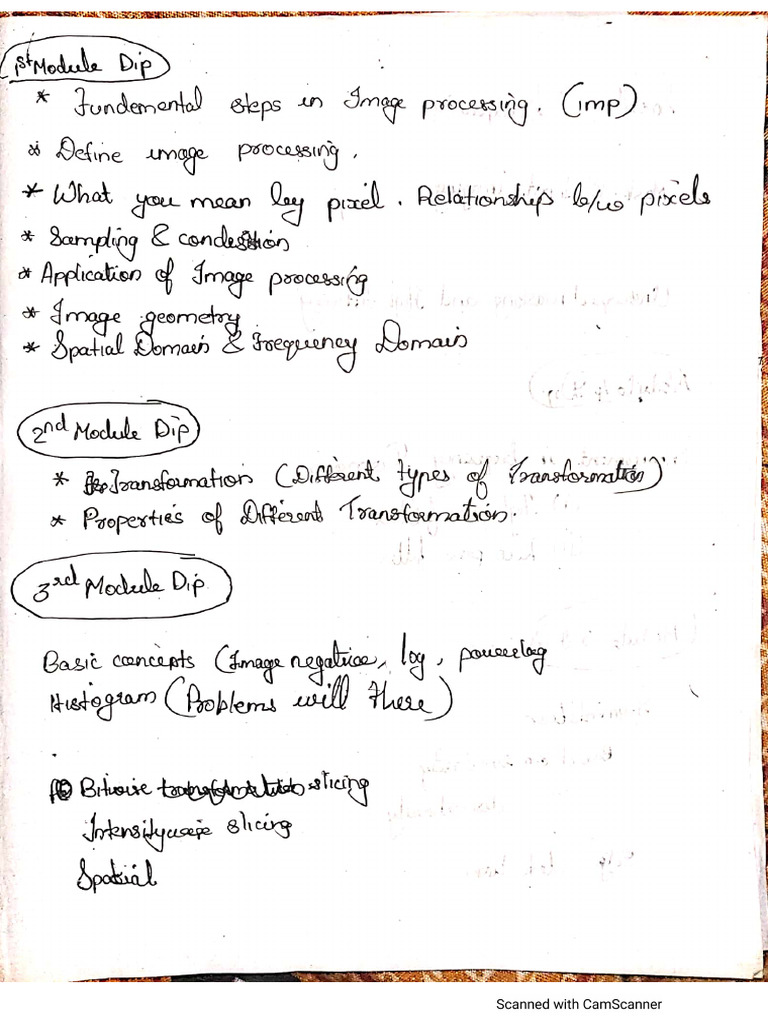 1st Module Dip
* Fundemental steps in Image processing. (imp)
* Define image processing.
* What you mean by pixel. Relationship b/w pixels
* Sampling &
* Application of Image processing
* Image geometry
* Spatial Domain & Frequency Domain
2nd Module Dip
* Transformation (Different Types of Transformation)
* Properties of Different Transformation.
3rd Module Dip
Basic concepts (Image negative, log, powerlog
Histogram (Problems will there)
Bitwise slicing
Intensitywise slicing
Spatial
Scanned with CamScanner